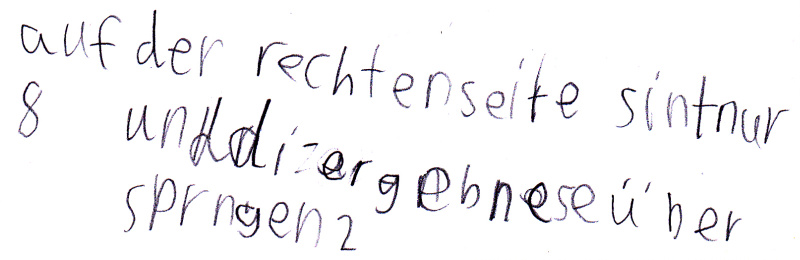 auf der rechtenseite sintnur
8 unddi ergebneseüber
sprngen 2